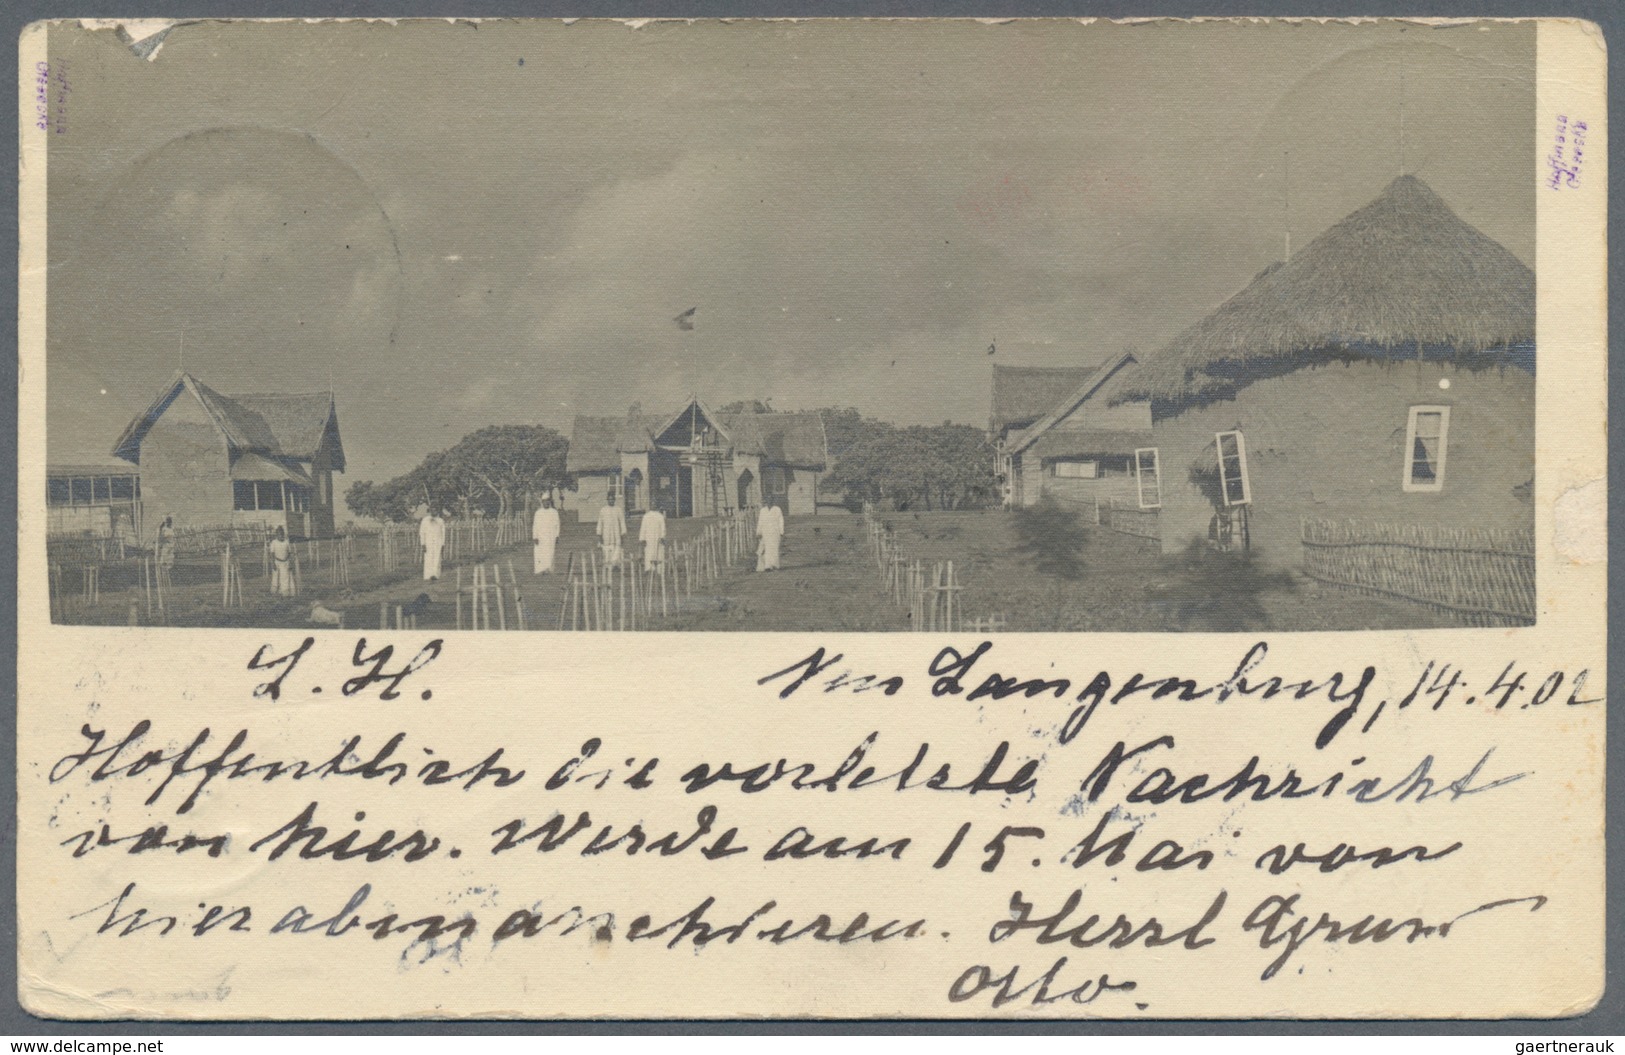 Hoffmann
Giesecke
Hoffmann
Giesecke
L. H.
Neu Langenburg, 14.4.02
Hoffentlich die vorletzte Nachricht
von hier. Werde am 15. Mai von
hier abmarschieren. Herzl Gruss
Otto.
www.delcampe.net
gaertnerauk